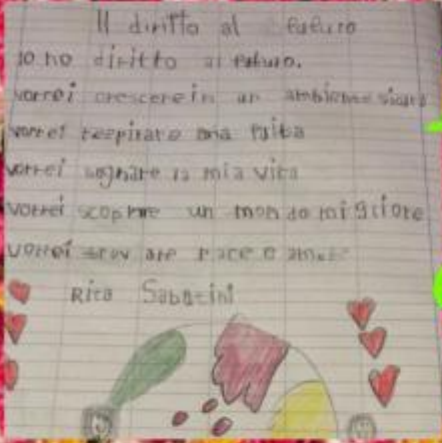 Il diritto al futuro
Io ho diritto al futuro.
vorrei crescere in un ambiente sicuro
vorrei respirare aria pulita
vorrei sognare la mia vita
vorrei scoprire un mondo migliore
vorrei trovare pace e amore
Rita Sabatini